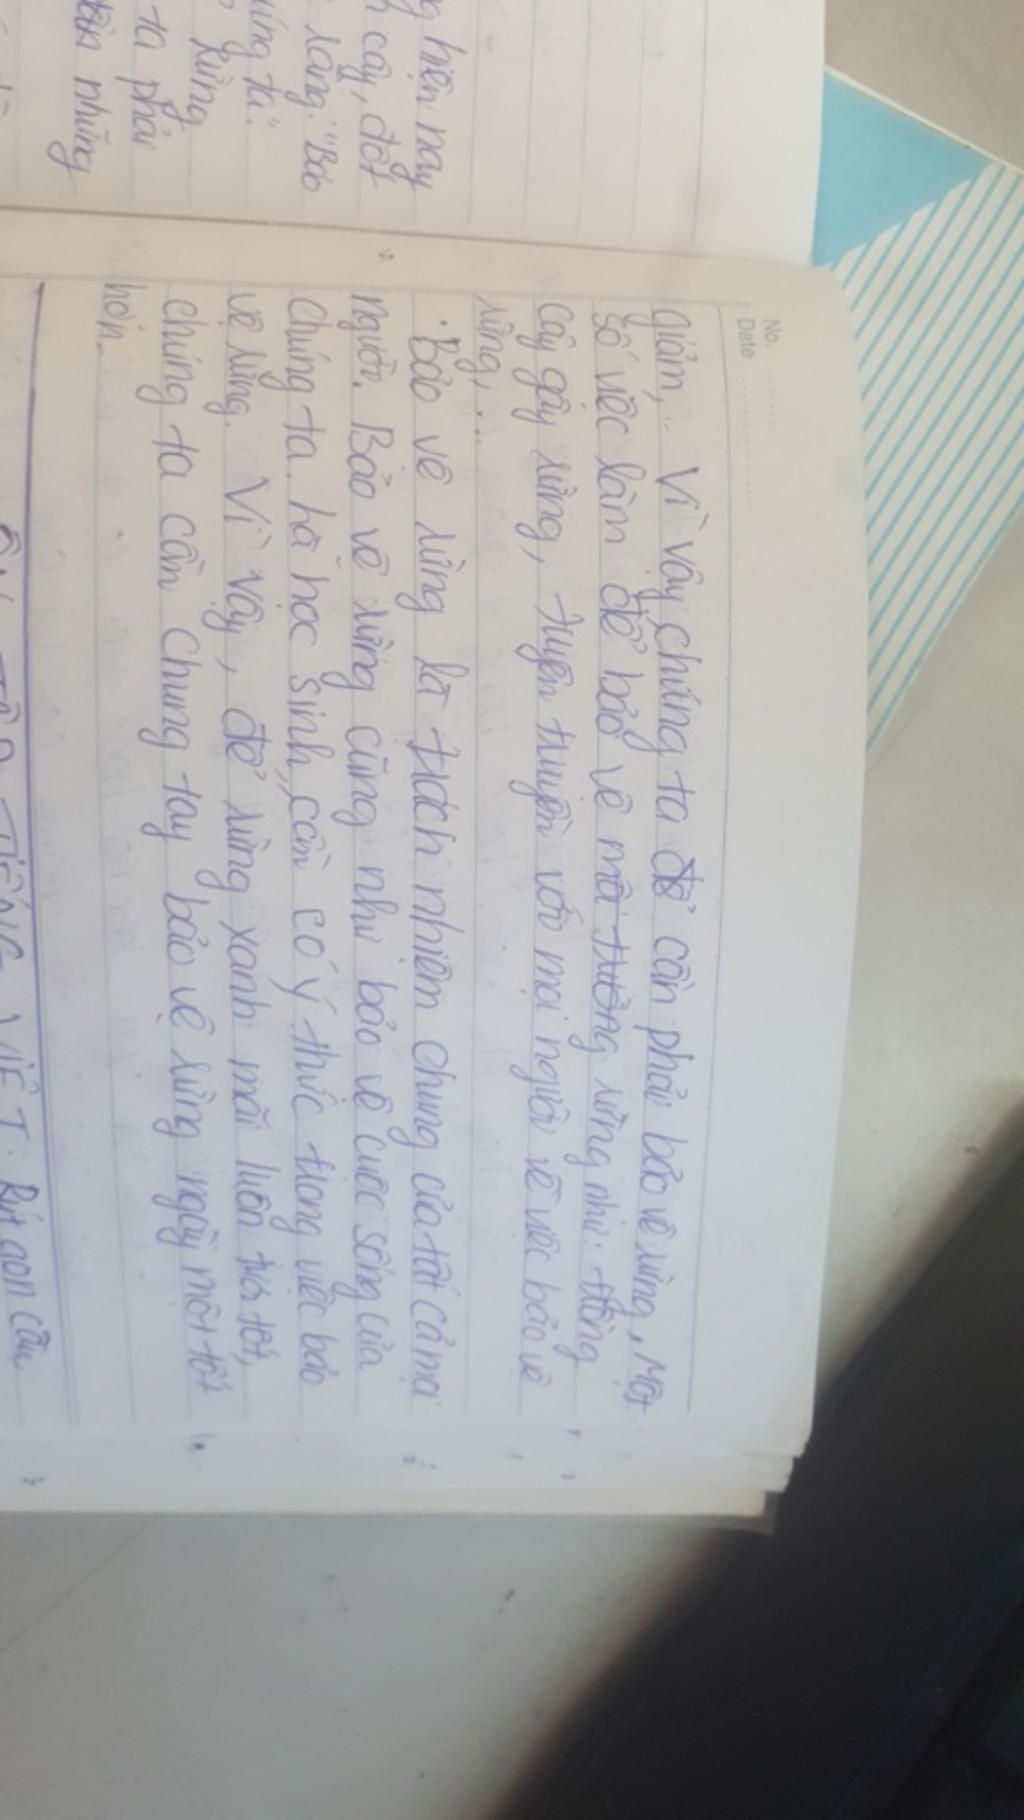 g hiện nay
cây, đốt
rằng: "Bảo
úng ta".
rừng
ta phải
những
No.
Date
giảm,... Vì vậy, chúng ta để cần phải bảo vệ rừng. Một
số việc làm để bảo vệ môi trường rừng như: trồng
cây gây rừng, tuyên truyền với mọi người về việc bảo vệ
rừng,...
. Bảo vệ rừng là trách nhiệm chung của tất cả mọi
người. Bảo vệ rừng cũng như bảo vệ cuộc sống của
chúng ta. Là học sinh, cần có ý thức trong việc bảo
vệ rừng. Vì vậy, để rừng xanh mãi luôn tươi tốt,
chúng ta cần chung tay bảo vệ rừng ngày một tốt
hơn.
TIẾNG VIỆT: Rút gọn câu.